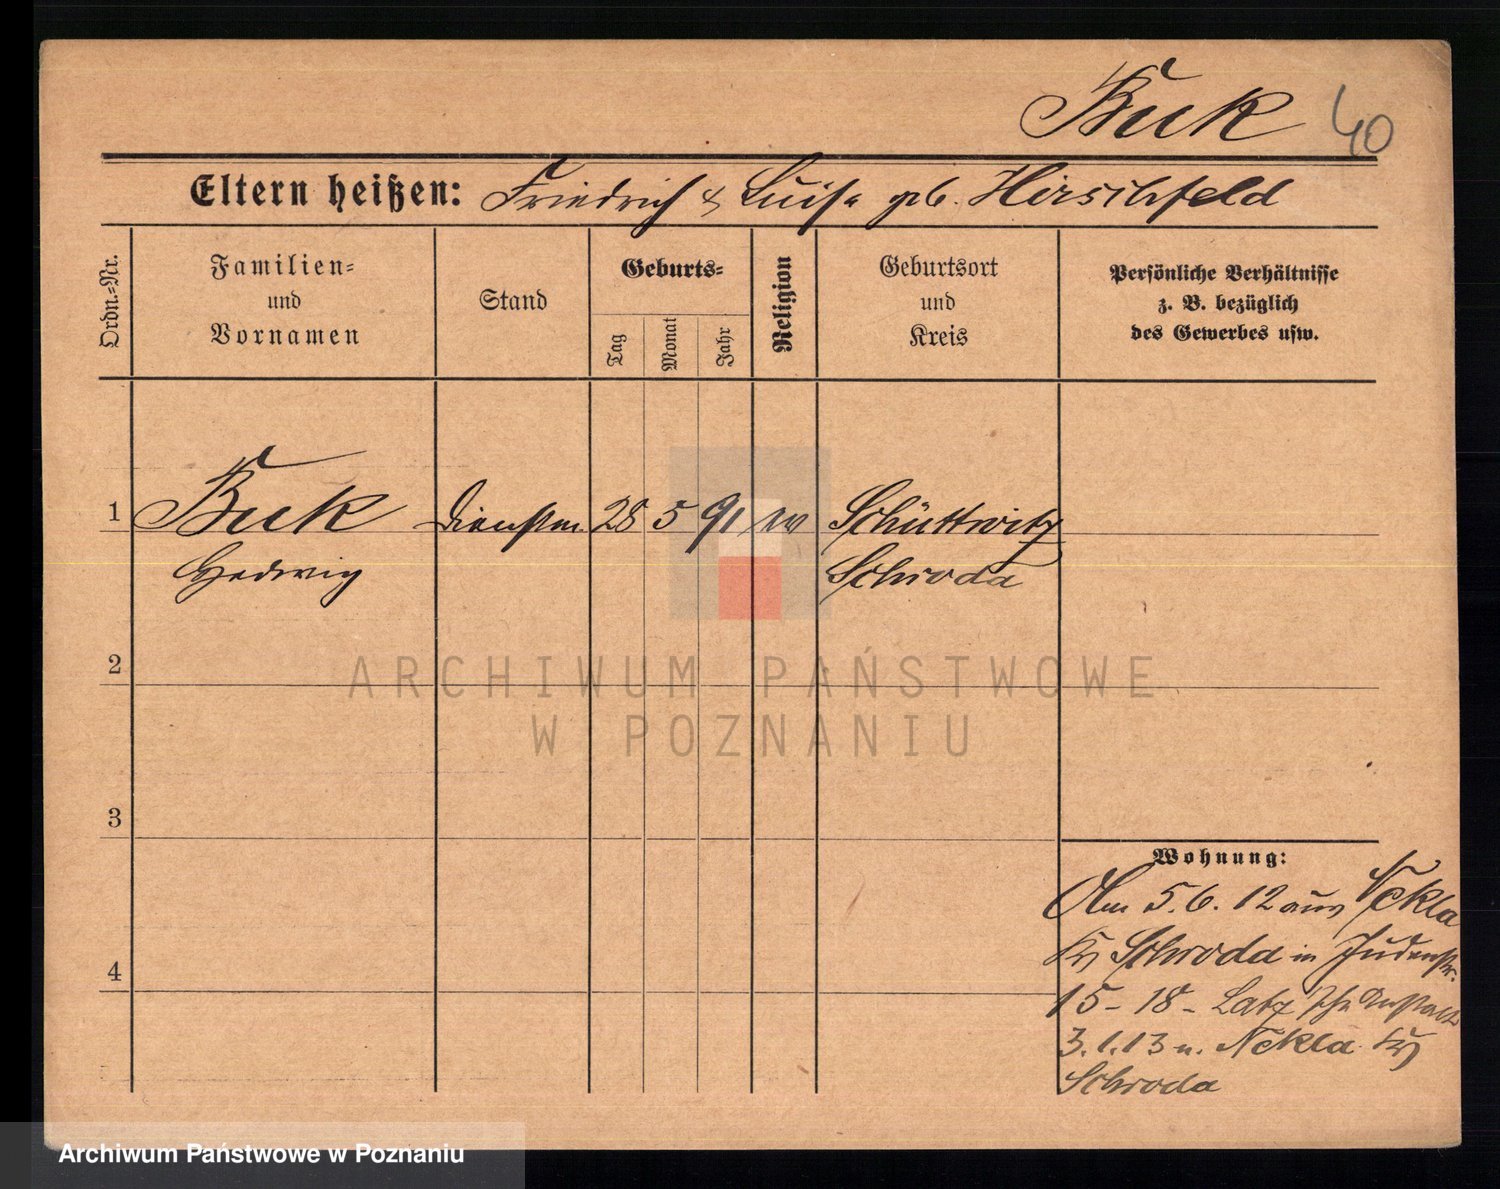 Buk 40
Eltern heißen: Friedrich & Luise geb. Hirschfeld
Ordn.=Nr.
Familien=
und
Vornamen
Stand
Geburts=
Tag
Monat
Jahr
Religion
Geburtsort
und
Kreis
Persönliche Verhältnisse
z. B. bezüglich
des Gewerbes usw.
1 Buk Dienstm 28 5 91 ev Schüttwitz
Hedwig Schroda
2
ARCHIWUM PAŃSTWOWE
W POZNANIU
3
Wohnung:
Am 5.6.12 aus Nekla
Kr Schroda in Judenstr.
4
15-18- Latz'sche Anstalt
3.1.13 n. Nekla Kr
Schroda
Archiwum Państwowe w Poznaniu